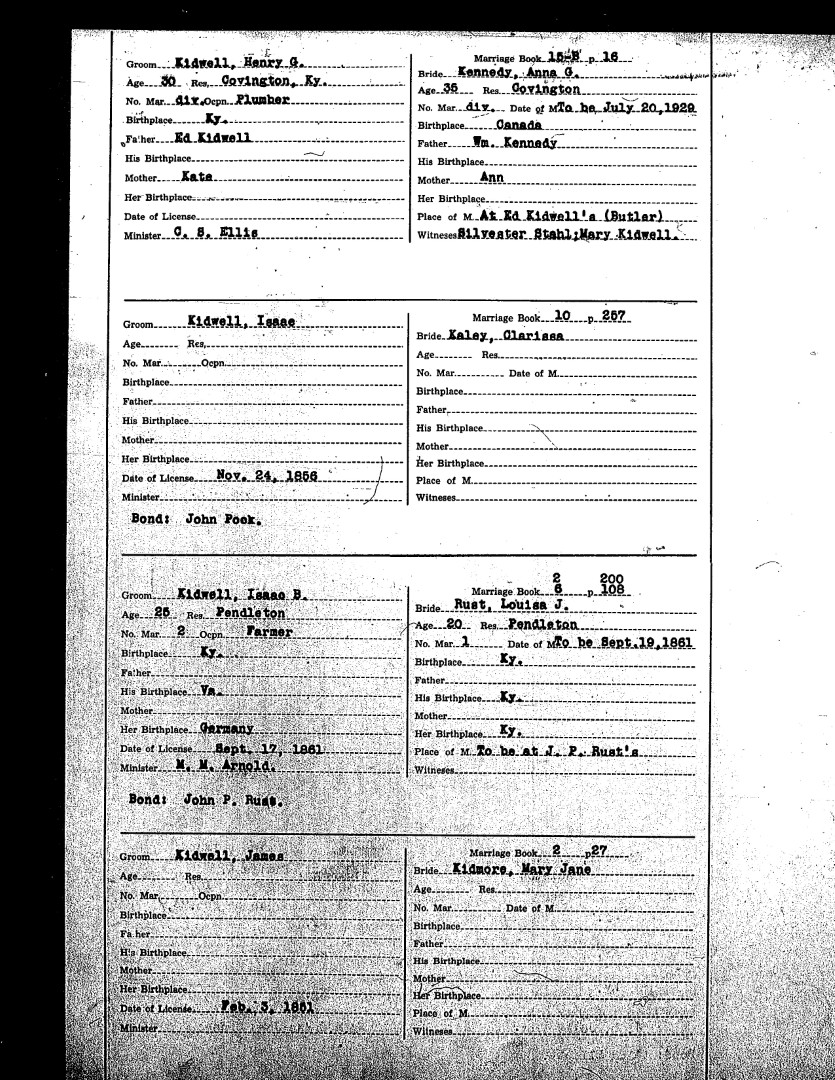 Groom Kidwell, Henry G.
Age 30 Res. Covington, Ky.
No. Mar. div. Ocpn. Plumber
Birthplace Ky.
Father Ed Kidwell
His Birthplace
Mother Kate
Her Birthplace
Date of License
Minister C. S. Ellis
Marriage Book 15-B p. 16
Bride Kennedy, Anna G.
Age 35 Res. Covington
No. Mar. div. Date of M To be July 20, 1929
Birthplace Canada
Father Wm. Kennedy
His Birthplace
Mother Ann
Her Birthplace
Place of M. At Ed Kidwell's (Butler)
Witnesses Silvester Stahl; Mary Kidwell.
Groom Kidwell, Isaac
Age Res.
No. Mar. Ocpn.
Birthplace
Father
His Birthplace
Mother
Her Birthplace
Date of License Nov. 24, 1856
Minister
Bond: John Pook.
Marriage Book 10 p. 257
Bride Kaley, Clarissa
Age Res.
No. Mar. Date of M.
Birthplace
Father
His Birthplace
Mother
Her Birthplace
Place of M.
Witnesses
Groom Kidwell, Isaac B.
Age 25 Res. Pendleton
No. Mar. 2 Ocpn. Farmer
Birthplace Ky.
Father
His Birthplace Va.
Mother
Her Birthplace Germany
Date of License Sept. 17, 1861
Minister M. M. Arnold.
Bond: John P. Rust.
2 200
Marriage Book 6 p. 108
Bride Rust, Louisa J.
Age 20 Res. Pendleton
No. Mar. 1 Date of M To be Sept. 19, 1861
Birthplace Ky.
Father
His Birthplace Ky.
Mother
Her Birthplace Ky.
Place of M. To be at J. P. Rust's
Witnesses
Groom Kidwell, James
Age Res.
No. Mar. Ocpn.
Birthplace
Father
His Birthplace
Mother
Her Birthplace
Date of License Feb. 3, 1851
Minister
Marriage Book 2 p 27
Bride Kidmore, Mary Jane
Age Res.
No. Mar. Date of M.
Birthplace
Father
His Birthplace
Mother
Her Birthplace
Place of M.
Witnesses